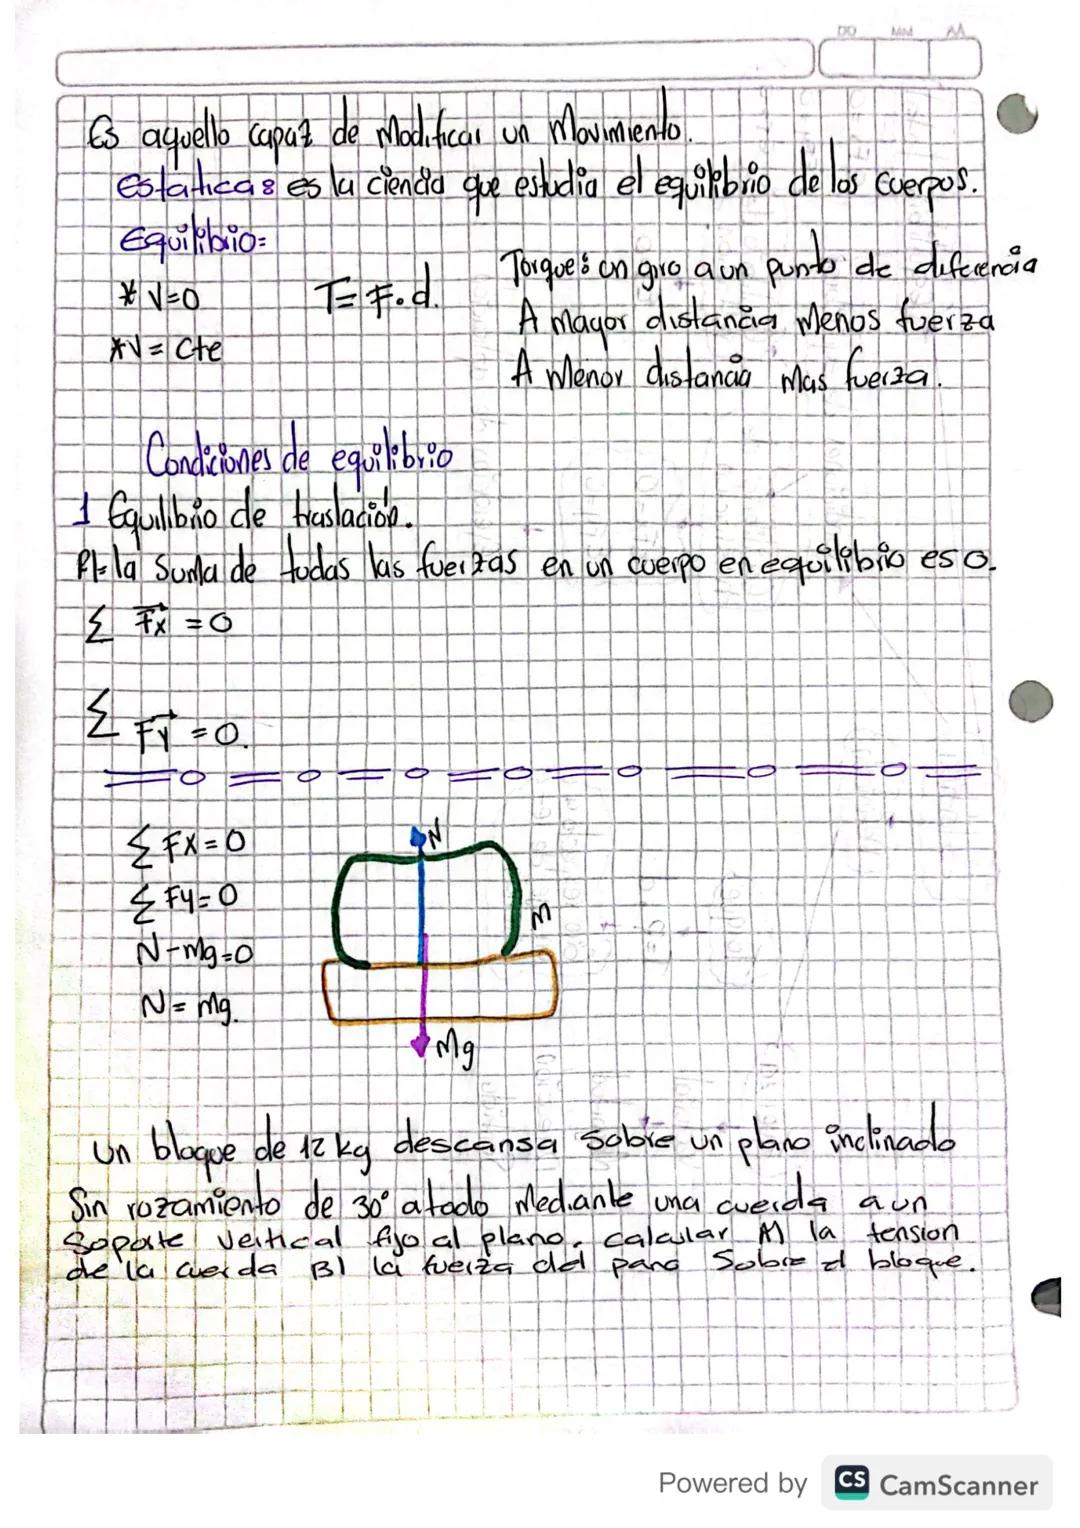 DD MM AA
Es aquello capaz de Modificar un Movimiento.
Estatica: es la ciencia que estudia el equilibrio de los cuerpos.
Equilibrio:
* V=0
T= F.d.
*V= Cte
Torque: un giro a un punto de diferencia
A mayor distancia menos fuerza
A menor distancia mas fuerza.
Condiciones de equilibrio
1 Equilibrio de traslación.
la suma de todas las fuerzas en un cuerpo en equilibrio es 0.
Σ Fx = 0
Σ Fy = 0.
Σ Fx = 0
Σ Fy = 0
N-mg=0
N= mg.
N
m
Mg
Un bloque de 12 kg descansa sobre un plano inclinado
Sin rozamiento de 30° atado Mediante una cuerda a un
soporte vertical fijo al plano. calcular A) la tension
de la cuerda B) la fuerza del pano sobre el bloque.
Powered by CS CamScanner